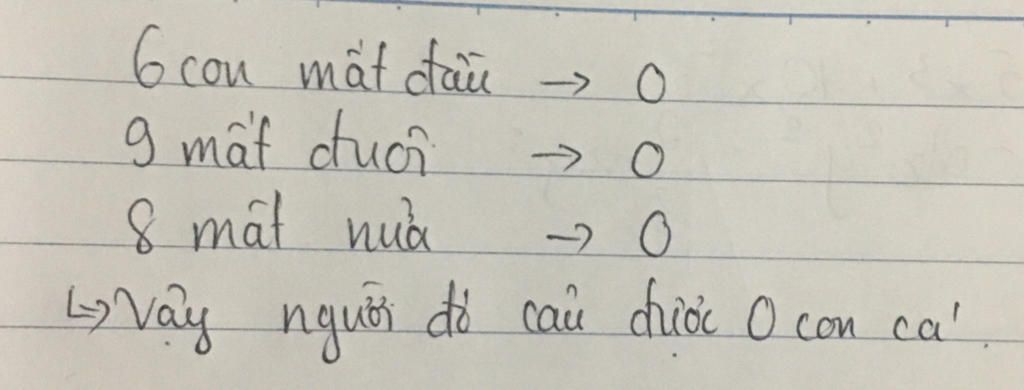 6 con mất đầu → 0
9 mất đuôi → 0
8 mất nửa → 0
↳ Vậy người đó câu được 0 con cá.